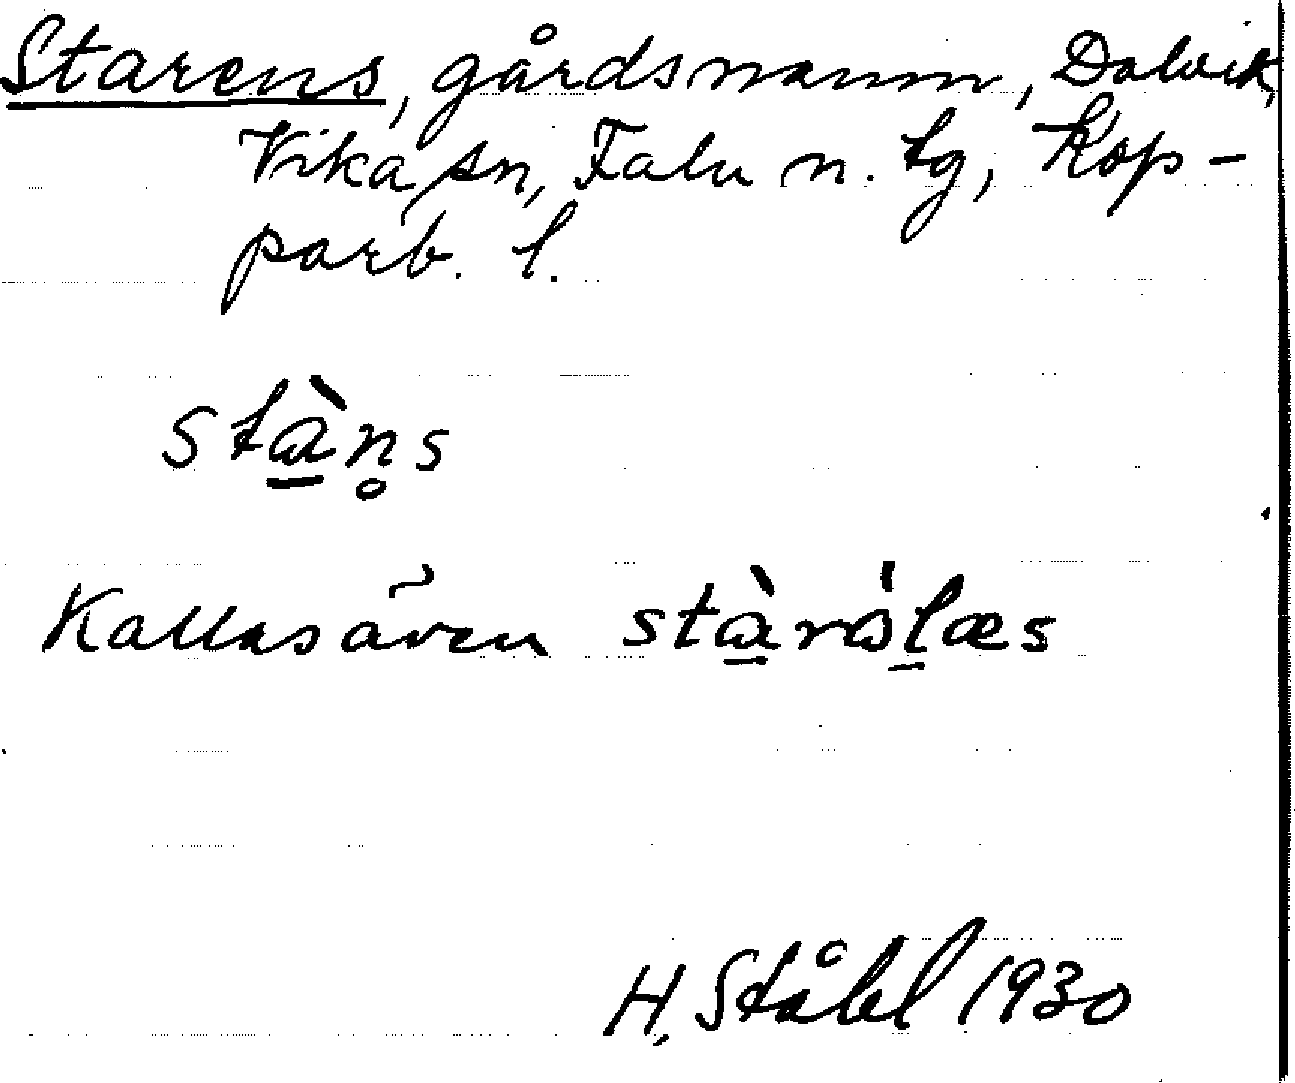 Starens, gårdsnamn, Dalvik,
Vika sn, Falu n. tg, Kop-
parb. l.
stà̱n̥s
Kallas även stà̱rólæs
H. Ståhl 1930